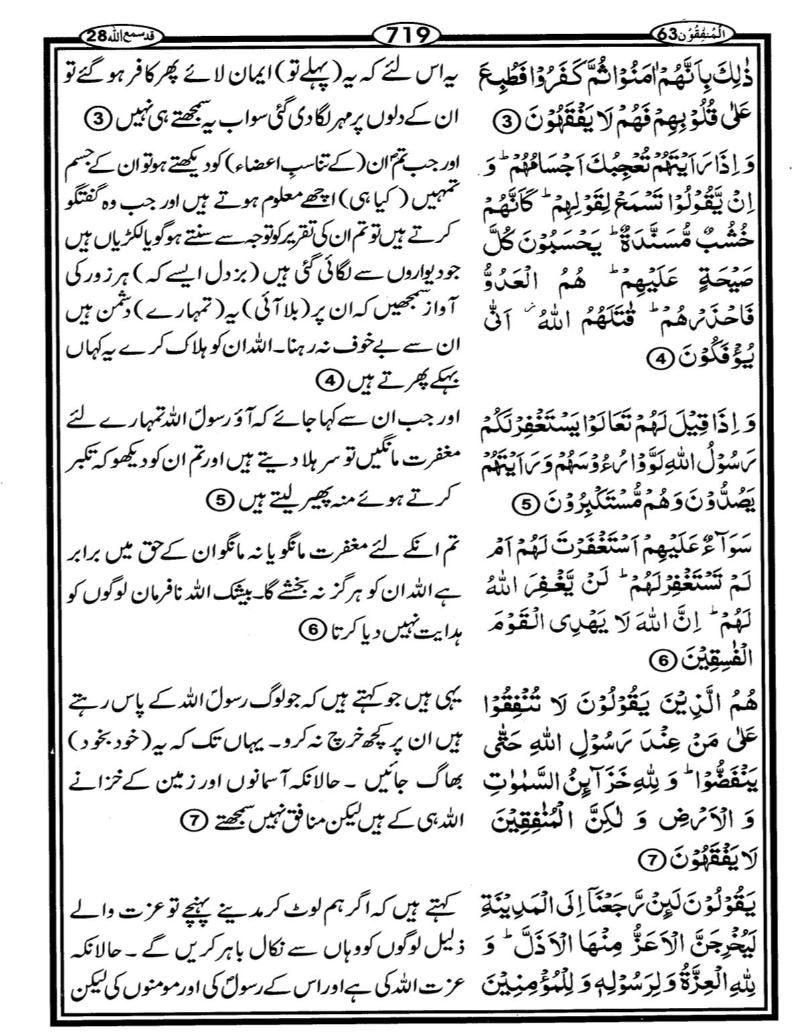 اَلْمُنٰفِقُوْن 63
719
قد سمع اللّٰه 28
ذٰلِكَ بِاَنَّهُمْ اٰمَنُوْا ثُمَّ كَفَرُوْا فَطُبِعَ
عَلٰى قُلُوْبِهِمْ فَهُمْ لَا يَفْقَهُوْنَ ③
وَ اِذَا رَاَيْتَهُمْ تُعْجِبُكَ اَجْسَامُهُمْ ؕ وَ
اِنْ يَّقُوْلُوْا تَسْمَعْ لِقَوْلِهِمْ ؕ كَاَنَّهُمْ
خُشُبٌ مُّسَنَّدَةٌ ؕ يَحْسَبُوْنَ كُلَّ
صَيْحَةٍ عَلَيْهِمْ ؕ هُمُ الْعَدُوُّ
فَاحْذَرْهُمْ ؕ قٰتَلَهُمُ اللّٰهُ ۫ اَنّٰى
يُؤْفَكُوْنَ ④
وَ اِذَا قِيْلَ لَهُمْ تَعَالَوْا يَسْتَغْفِرْ لَكُمْ
رَسُوْلُ اللّٰهِ لَوَّوْا رُءُوْسَهُمْ وَ رَاَيْتَهُمْ
يَصُدُّوْنَ وَ هُمْ مُّسْتَكْبِرُوْنَ ⑤
سَوَآءٌ عَلَيْهِمْ اَسْتَغْفَرْتَ لَهُمْ اَمْ
لَمْ تَسْتَغْفِرْ لَهُمْ ؕ لَنْ يَّغْفِرَ اللّٰهُ
لَهُمْ ؕ اِنَّ اللّٰهَ لَا يَهْدِى الْقَوْمَ
الْفٰسِقِيْنَ ⑥
هُمُ الَّذِيْنَ يَقُوْلُوْنَ لَا تُنْفِقُوْا
عَلٰى مَنْ عِنْدَ رَسُوْلِ اللّٰهِ حَتّٰى
يَنْفَضُّوْا ؕ وَ لِلّٰهِ خَزَآىِٕنُ السَّمٰوٰتِ
وَ الْاَرْضِ وَ لٰكِنَّ الْمُنٰفِقِيْنَ
لَا يَفْقَهُوْنَ ⑦
يَقُوْلُوْنَ لَىِٕنْ رَّجَعْنَاۤ اِلَى الْمَدِيْنَةِ
لَيُخْرِجَنَّ الْاَعَزُّ مِنْهَا الْاَذَلَّ ؕ وَ
لِلّٰهِ الْعِزَّةُ وَ لِرَسُوْلِهٖ وَ لِلْمُؤْمِنِيْنَ
یہ اس لئے کہ یہ (پہلے تو) ایمان لائے پھر کافر ہو گئے تو
ان کے دلوں پر مہر لگا دی گئی سو اب یہ سمجھتے ہی نہیں ③
اور جب تم ان (کے تناسبِ اعضاء) کو دیکھتے ہو تو ان کے جسم
تمہیں (کیا ہی) اچھے معلوم ہوتے ہیں اور جب وہ گفتگو
کرتے ہیں تو تم ان کی تقریر کو توجہ سے سنتے ہو گویا لکڑیاں ہیں
جو دیواروں سے لگائی گئی ہیں (بزدل ایسے کہ) ہر زور کی
آواز سمجھیں کہ ان پر (بلا آئی) یہ (تمہارے) دشمن ہیں
ان سے بے خوف نہ رہنا۔ اللہ ان کو ہلاک کرے یہ کہاں
بہکے پھرتے ہیں ④
اور جب ان سے کہا جائے کہ آؤ رسولؐ اللہ تمہارے لئے
مغفرت مانگیں تو سر ہلا دیتے ہیں اور تم ان کو دیکھو کہ تکبر
کرتے ہوئے منہ پھیر لیتے ہیں ⑤
تم انکے لئے مغفرت مانگو یا نہ مانگو ان کے حق میں برابر
ہے اللہ ان کو ہرگز نہ بخشے گا۔ بیشک اللہ نافرمان لوگوں کو
ہدایت نہیں دیا کرتا ⑥
یہی ہیں جو کہتے ہیں کہ جو لوگ رسولؐ اللہ کے پاس رہتے
ہیں ان پر کچھ خرچ نہ کرو۔ یہاں تک کہ یہ (خود بخود)
بھاگ جائیں ۔ حالانکہ آسمانوں اور زمین کے خزانے
اللہ ہی کے ہیں لیکن منافق نہیں سمجھتے ⑦
کہتے ہیں کہ اگر ہم لوٹ کر مدینے پہنچے تو عزت والے
ذلیل لوگوں کو وہاں سے نکال باہر کریں گے ۔ حالانکہ
عزت اللہ کی ہے اور اس کے رسولؐ کی اور مومنوں کی لیکن